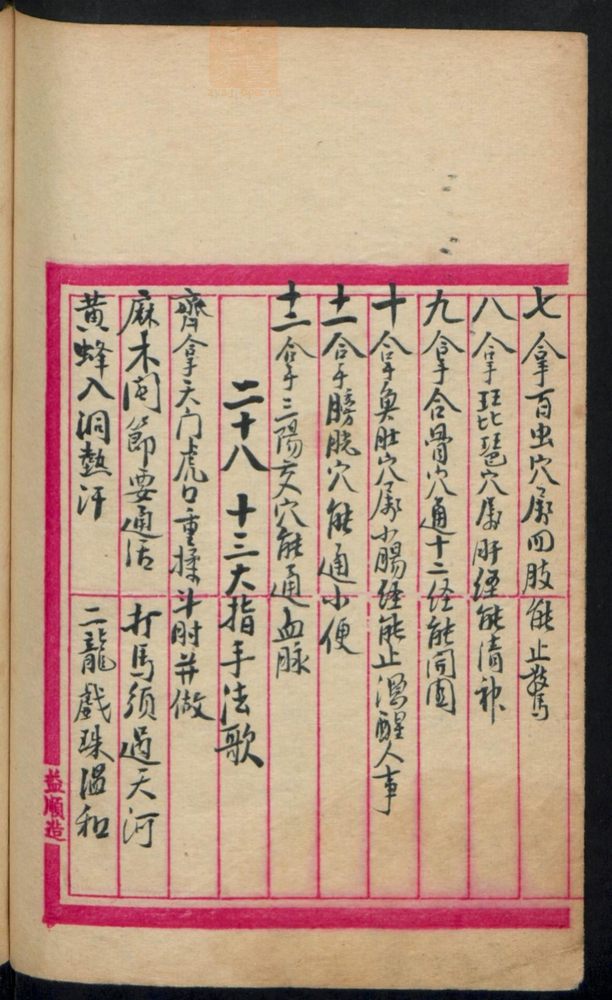 七拿百虫穴属四肢能止驚
八拿琵琶穴属肝经能清神
九拿合骨穴通十二经能開
十拿魚肚穴属小腸经能止瀉醒人事
十一拿膀胱穴能通小便
十二拿三陽交穴能通血脉
二十八 十三大指手法歌
齊拿天门虎口重揉斗肘并做
麻木関節要通活 打馬須過天河
黄蜂入洞熱汗 二龍戲珠温和
益順造